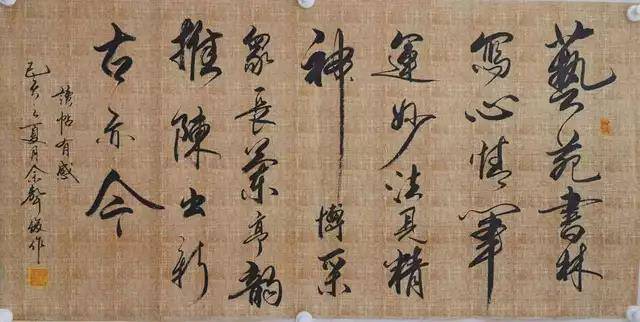 藝苑書林
寫心情筆
運妙法見精
神博采
衆長蘭亭韵
推陳出新
古亦今
讀帖有感
己亥之夏月余聲作